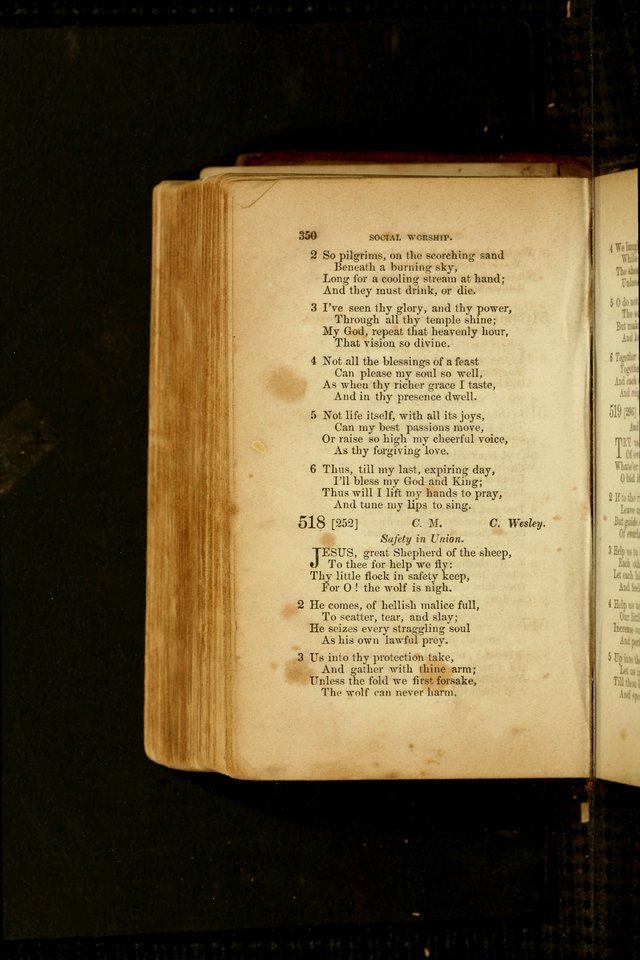 350 SOCIAL WORSHIP.
2 So pilgrims, on the scorching sand
Beneath a burning sky,
Long for a cooling stream at hand;
And they must drink, or die.
3 I've seen thy glory, and thy power,
Through all thy temple shine;
My God, repeat that heavenly hour,
That vision so divine.
4 Not all the blessings of a feast
Can please my soul so well,
As when thy richer grace I taste,
And in thy presence dwell.
5 Not life itself, with all its joys,
Can my best passions move,
Or raise so high my cheerful voice,
As thy forgiving love.
6 Thus, till my last, expiring day,
I'll bless my God and King;
Thus will I lift my hands to pray,
And tune my lips to sing.
518 [252] C. M. C. Wesley.
Safety in Union.
JESUS, great Shepherd of the sheep,
To thee for help we fly:
Thy little flock in safety keep,
For O! the wolf is nigh.
2 He comes, of hellish malice full,
To scatter, tear, and slay;
He seizes every straggling soul
As his own lawful prey.
3 Us into thy protection take,
And gather with thine arm;
Unless the fold we first forsake,
The wolf can never harm.
4 We
While
The
5 O do
The
But
And
6 Together
Together
And
And
519 [296]
And
TRY
Of
Whate'er
O bid
2 If to the
Leave
But guide
Of
3 Help us to
Each
Let each
And
4 Help us
Our
Increase
And
5 Up into
Let us
Till
And